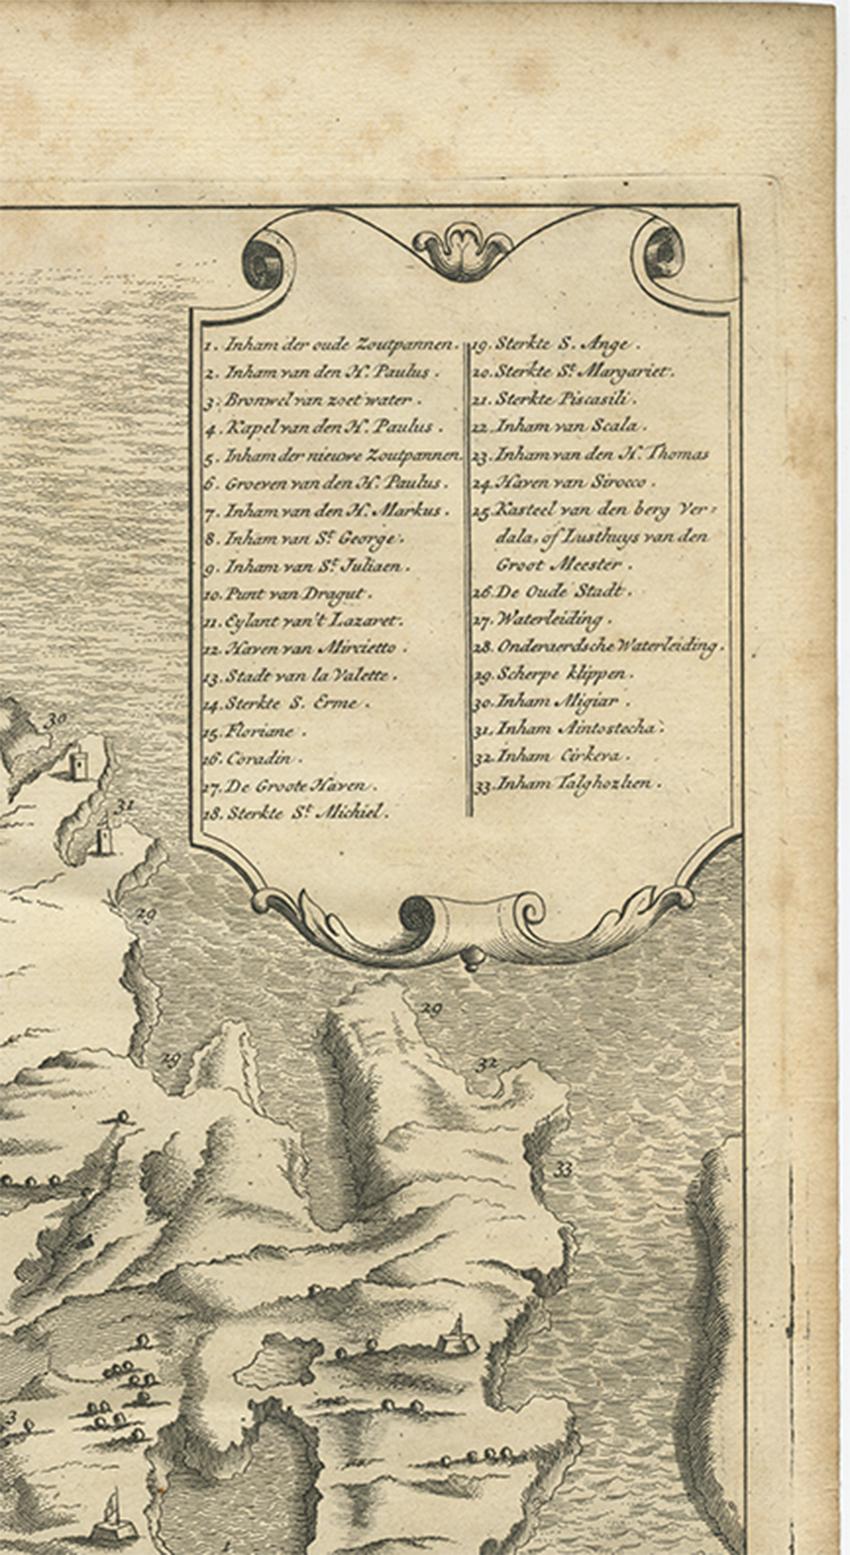 1. Inham der oude Zoutpannen.
2. Inham van den H. Paulus.
3. Bronwel van zoet water.
4. Kapel van den H. Paulus.
5. Inham der nieuwe Zoutpannen.
6. Groeven van den H. Paulus.
7. Inham van den H. Markus.
8. Inham van St. George.
9. Inham van St. Juliaen.
10. Punt van Dragut.
11. Eylant van't Lazaret.
12. Haven van Mircietto.
13. Stadt van la Valette.
14. Sterkte S. Erme.
15. Floriane.
16. Coradin.
17. De Groote Haven.
18. Sterkte St. Michiel.
19. Sterkte S. Ange.
20. Sterkte St. Margariet.
21. Sterkte Piscasili.
22. Inham van Scala.
23. Inham van den H. Thomas
24. Haven van Sirocco.
25. Kasteel van den berg Ver-
dala, of Lusthuys van den
Groot Meester.
26. De Oude Stadt.
27. Waterleiding.
28. Onderaerdsche Waterleiding.
29. Scherpe klippen.
30. Inham Migiar.
31. Inham Aintostecha.
32. Inham Cirkeva.
33. Inham Talghozlien.
30
31
29
29
29
32
33
3
1